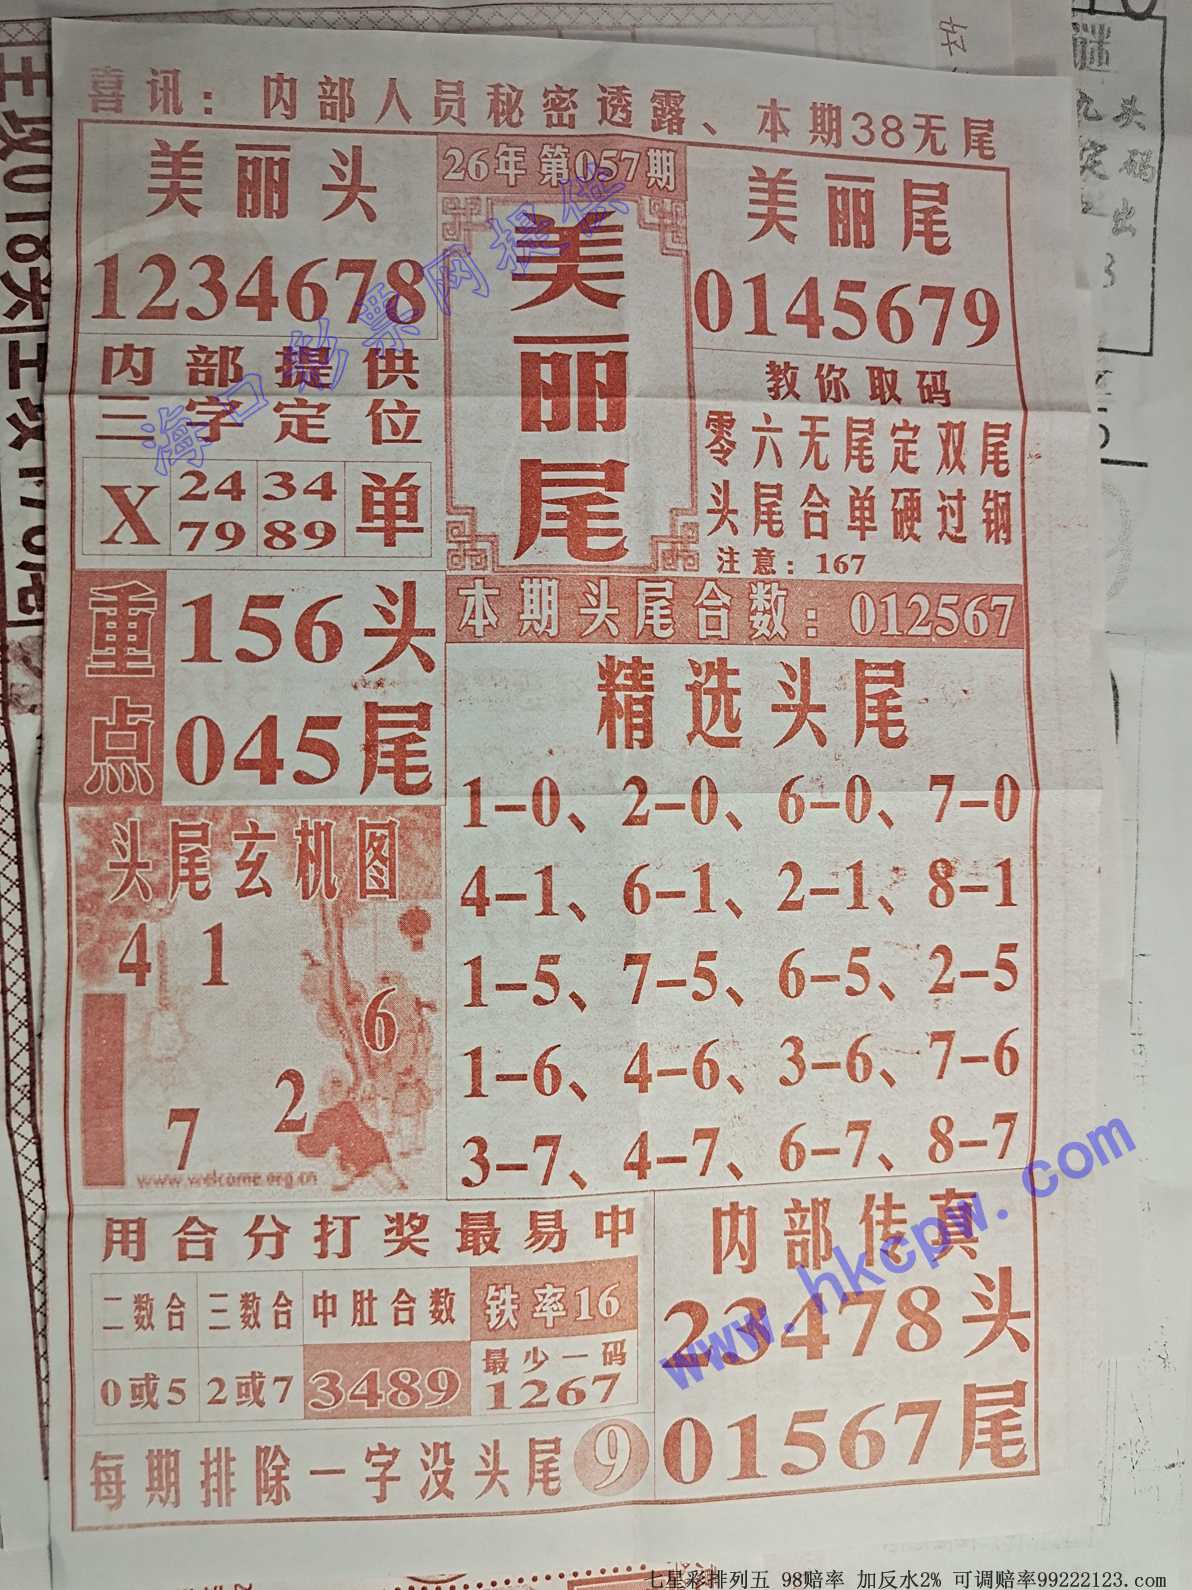 喜讯：内部人员秘密透露、本期38无尾
美丽头
1234678
26年第057期
美丽尾
美丽尾
0145679
内部提供
三字定位
X
24 34
79 89
单
教你取码
零六无尾定双尾
头尾合单硬过钢
注意：167
重点
156头
045尾
本期头尾合数：012567
精选头尾
1-0、2-0、6-0、7-0
4-1、6-1、2-1、8-1
1-5、7-5、6-5、2-5
1-6、4-6、3-6、7-6
3-7、4-7、6-7、8-7
头尾玄机图
4 1
6
2
7
www.welcome.org.cn
用合分打奖最易中
二数合 三数合 中肚合数 铁率16
0或5 2或7 3489 最少一码
1267
每期排除一字没头尾 9
内部传真
23478头
01567尾
海口彩票网提供
www.hkcpw.com
七星彩排列五 98赔率 加反水2% 可调赔率99222123.com